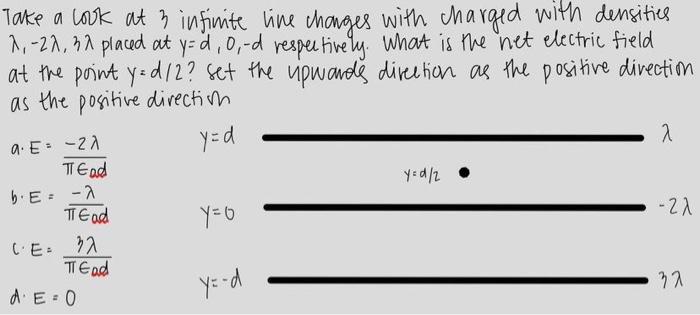 Take a look at 3 infinite line changes with charged with densities
λ, -2λ, 3λ placed at y=d, 0, -d respectively. What is the net electric field
at the point y=d/2? Set the upwards direction as the positive direction
as the positive direction
a. E = -2λ / πϵod
b. E = -λ / πϵod
c. E = 3λ / πϵod
d. E = 0
y=d λ
y=d/2
y=0 -2λ
y=-d 3λ